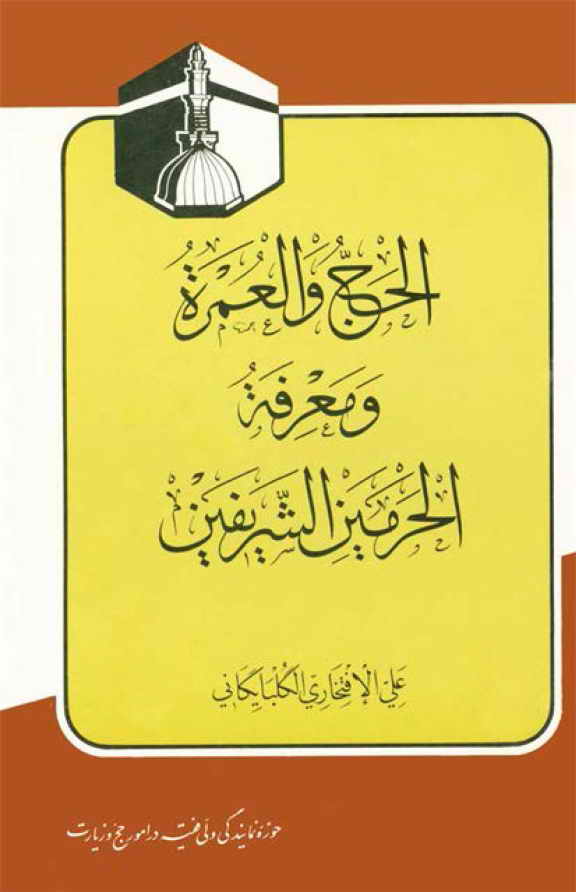 الحَجُّ وَالْعُمْرَةُ
وَمَعْرِفَةُ
الْحَرَمَيْنِ الشَّرِيفَيْنِ
عَلِيّ الإِفْتِخَارِيّ الْكَلْبَايكَاني
حوزه نمایندگی ولی فقیه در امور حج و زیارت